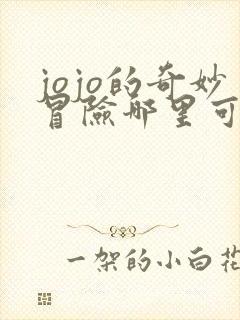 jojo的奇妙
冒險那里可
一架的小白花